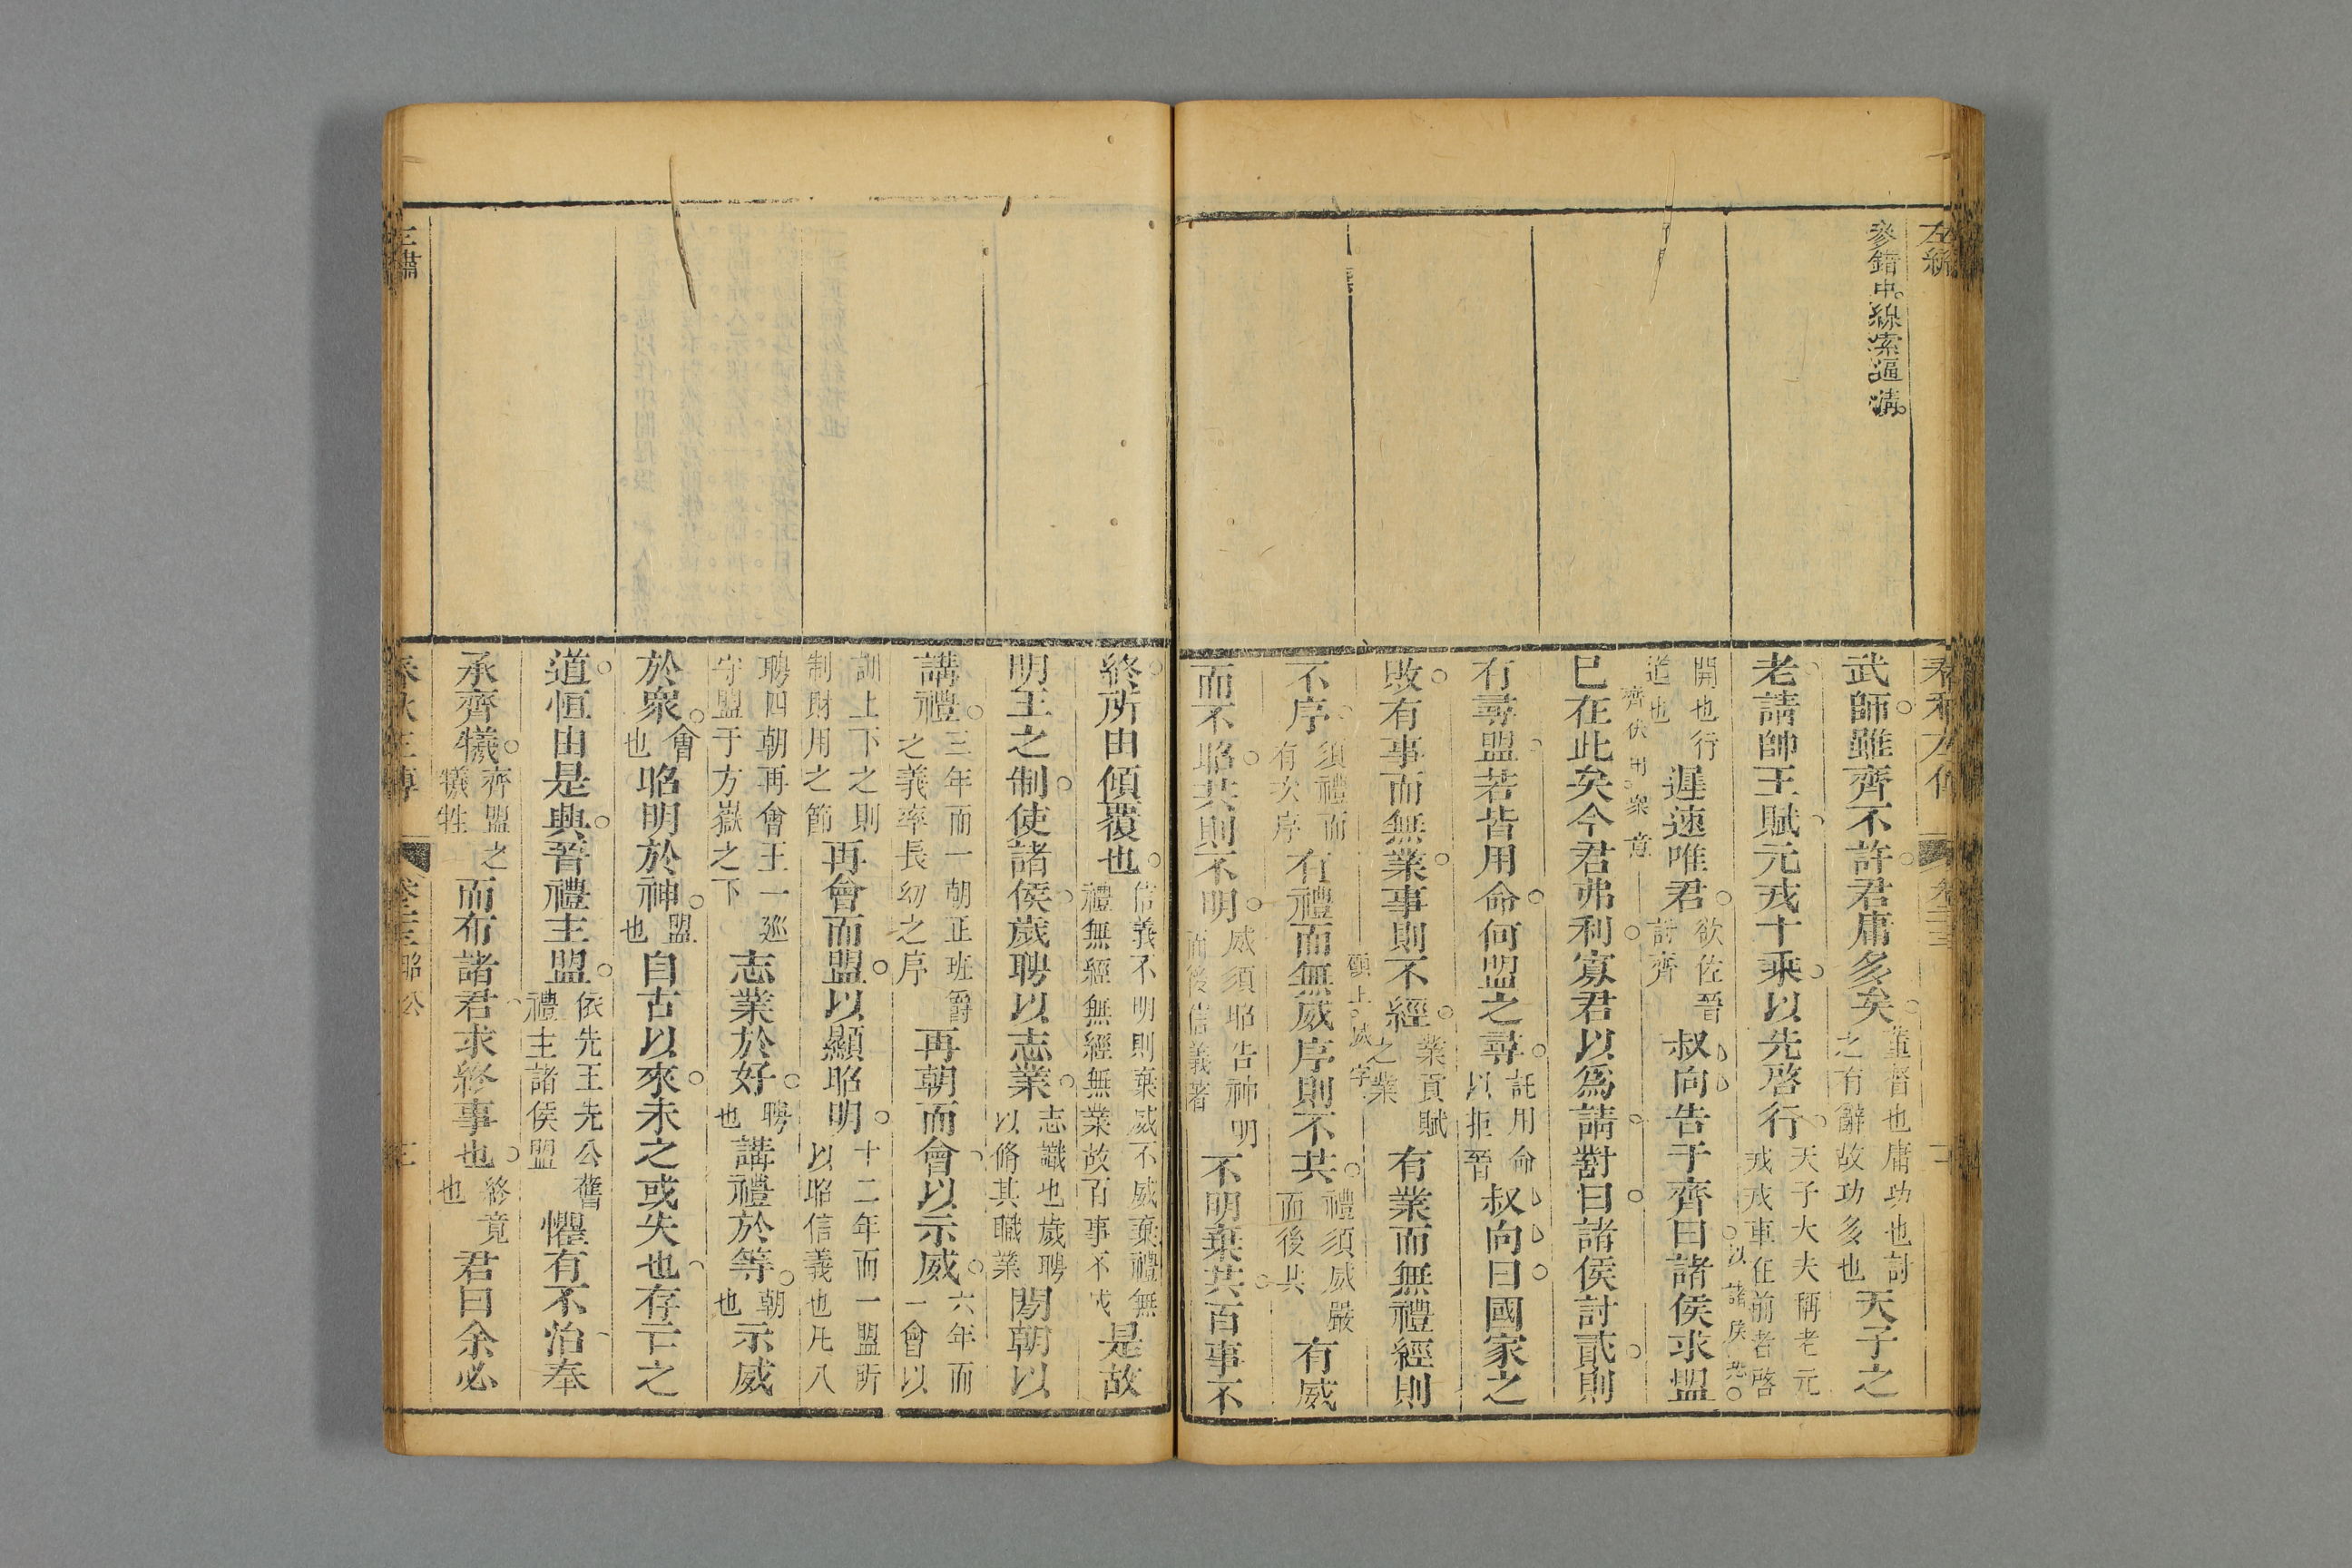 左繡
春秋左傳
參錯中線索逼清
武師雖齊不許君庸多矣董督也庸功也討之有辭故功多也天子之
老請帥王賦元戎十乘以先啓行天子大夫稱老元戎戎車在前者啓
開也行道也遲速唯君欲佐晉討齊叔向告于齊曰諸侯求盟
以諸侯恐
已在此矣今君弗利寡君以爲請對曰諸侯討貳則
齊伏用衆意
有尋盟若皆用命何盟之尋託用命以拒晉叔向曰國家之
敗有事而無業事則不經業貢賦之業有業而無禮經則
頭上
不序須禮而有次序有禮而無威序則不共禮須威嚴而後共有威
而不昭共則不明威須昭告神明而後信義著不明棄共百事不
終所由傾覆也信義不明則棄威不威棄禮無禮無經無經無業故百事不成是故
明王之制使諸侯歲聘以志業志識也歲聘以脩其職業閒朝以
講禮三年而一朝正班爵之義率長幼之序再朝而會以示威六年而一會以
訓上下之則制財用之節再會而盟以顯昭明十二年而一盟所以昭信義也凡八
聘四朝再會王一巡守盟于方嶽之下志業於好聘也講禮於等朝也示威
於衆會也昭明於神盟也自古以來未之或失也存亡之
道恒由是興晉禮主盟依先王先公舊禮主諸侯盟懼有不治奉
承齊犧齊盟之犧牲而布諸君求終事也終竟也君曰余必
春秋左傳 卷二三 昭公 三